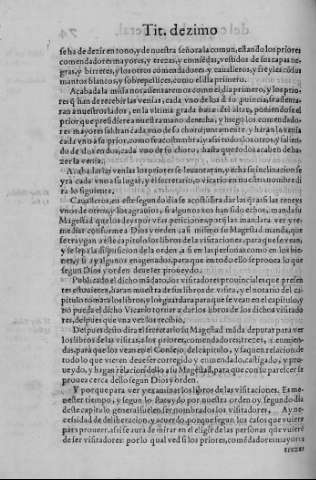 Tit. dézimo
se ha de dezir en tono, y de nuestra señora la comun, estando los priores
comendadores mayores, y trezes, y enmiédas, vestidos de sus capas ne-
gras, y birretes, y los otros comendadores y caualleros, y freyles có sus
mantos blancos, y sobrepellices, como el dia primero.
Acabada la missa nos assentaremos como el dia primero, y los prio-
res q han de recebir las venias, cada vno de los d su prouincia, se assenta-
ran a nuestro lado, en la vltima grada baxa del altar, poniendose el
prior que presidiere a nuestra mano derecha, y luego los comendado-
res mayores saldran cada vno de su choro juntamente, y haran la venia
cada vno a su prior, como se acostumbra, y assi todos los otros, y salien-
do de dos en dos, cada vno de su choro, hasta que todos acaben de ha-
zer la venia.
Acabadas las venias los priores se leuantaran, y echa su inclinacion se
yra cada vno a su lugar, y el secretario, o vicario en su nombre dira
lo siguiente.
Caualleros, en este segundo dia se acostúbra dar las quexas
vnos de otros, y los agrauios, si algunos os han sido echos, manda su
Magestad que los deys por via de peticiones, porq las mandara ver y re-
mediar conforme a Dios y orden: assi mismo su Magestad manda, que
se traygan a este capitulo los libros de las visitaciones, para que se vean,
y se sepa la disposicion de la orden assi en las personas como en los bie-
nes, y si ay algunos enagenados, para que en todo ello se prouea lo que
segun Dios y orden deuе ser proueydo.
Publicado el dicho mádato, los visitadores prouinciales que presen-
tes estuuieren, haran muestra de sus libros de visita, y el notario del ca-
pitulo tomara los libros, y los guardara para que se vean en el capitulo, y
no pueda el dicho Vicario tornar a dar los libros de los dichos visitado
res, despues que vna vez los recibio.
Despues desto dira el secretario su Magestad máda deputar para ver
los libros de las visitas, a los priores, comendadores, trezes, y enmien-
das, para que los vean en el Consejo, del capitulo, y saquen relacion de
todo lo que vieren deue ser corregido y enmendado, castigado, y pro-
ueydo, y hagan relacion dello a su Magestad, para que con su parescer se
prouea cerca dello segun Dios y orden.
Y porque para ver y examinar los libros de las visitaciones. Es me-
nester tiempo, y segun lo statuydo por nuestra orden oy segundo dia
deste capitulo general suelen ser nombrados los visitadores, Ay ne-
cessidad de deliberacion, y acuerdo, porque segun los casos que vuiere
para proueer. assi se aura de mirar en el eligir de las personas que vuieré
de ser visitadores por lo qual ved si los priores, comédadores mayores
trezes